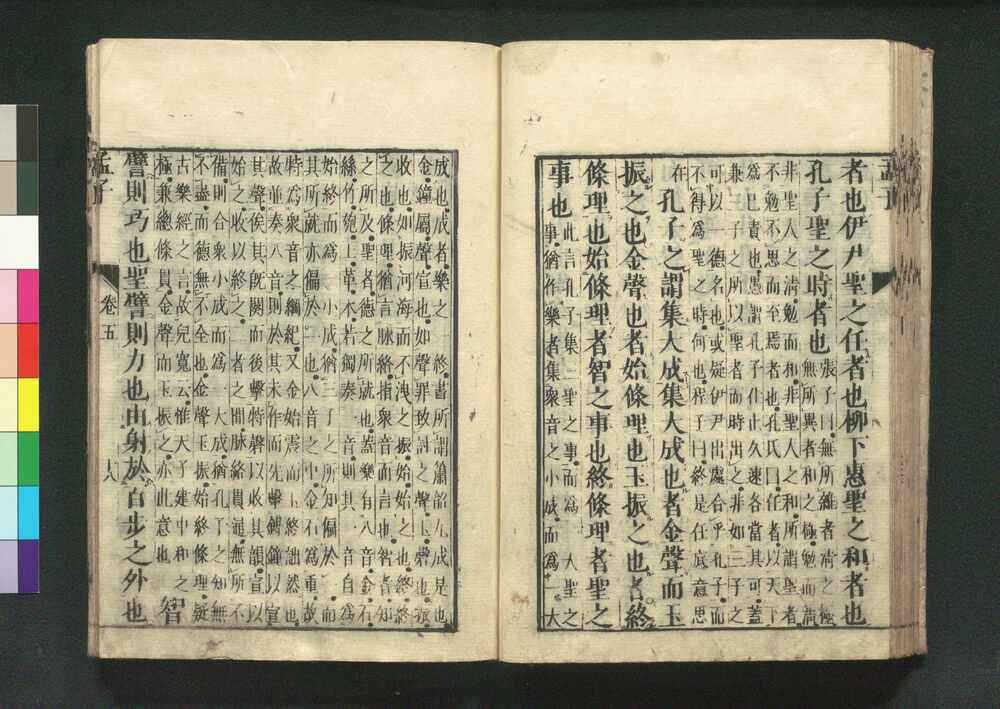 者也伊尹聖之任者也柳下惠聖之和者也
孔子聖之時者也
張子曰無所雜者清之極
無所異者和之極勉而清
非聖人之清勉而和非聖人之和所謂聖者
不勉不思而至焉者也孔氏曰任者以天下
為己責也愚謂孔子仕止久速各當其可蓋
兼三子之所以聖者而時出之非如三子之
可以一德名也或疑伊尹出處合乎孔子而
不得為聖之時何也程子曰終是任底意思
在
孔子之謂集大成集大成也者金聲而玉
振之也金聲也者始條理也玉振之也者終
條理也始條理者智之事也終條理者聖之
事也
此言孔子集三聖之事而為一大聖之
事猶作樂者集衆音之小成而為一大
成也成者樂之一終書所謂簫韶九成是也
金鐘屬聲宣也如聲罪致討之聲玉磬也振
收也如振河海而不洩之振始始之也終終
之也條理猶言脉絡指衆音而言也智者知
之所及聖者德之所就也蓋樂有八音金石
絲竹匏土革木若獨奏一音則其一音自為
始終而為一小成猶三子之所知偏於一而
其所就亦偏於一也八音之中金石為重故
特為衆音之綱紀又金始震而玉終詘然也
故並奏八音則於其未作而先擊鎛鐘以宣
其聲俟其既闋而後擊特磬以收其韻宣以
始之收以終之二者之間脉絡貫通無所不
備則合衆小成而為一大成猶孔子之知無
不盡而德無不全也金聲玉振始終條理疑
古樂經之言故兒寬云惟天子建中和之
極兼總條貫金聲而玉振之亦此意也
智
譬則巧也聖譬則力也由射於百步之外也
孟子
卷五
十八